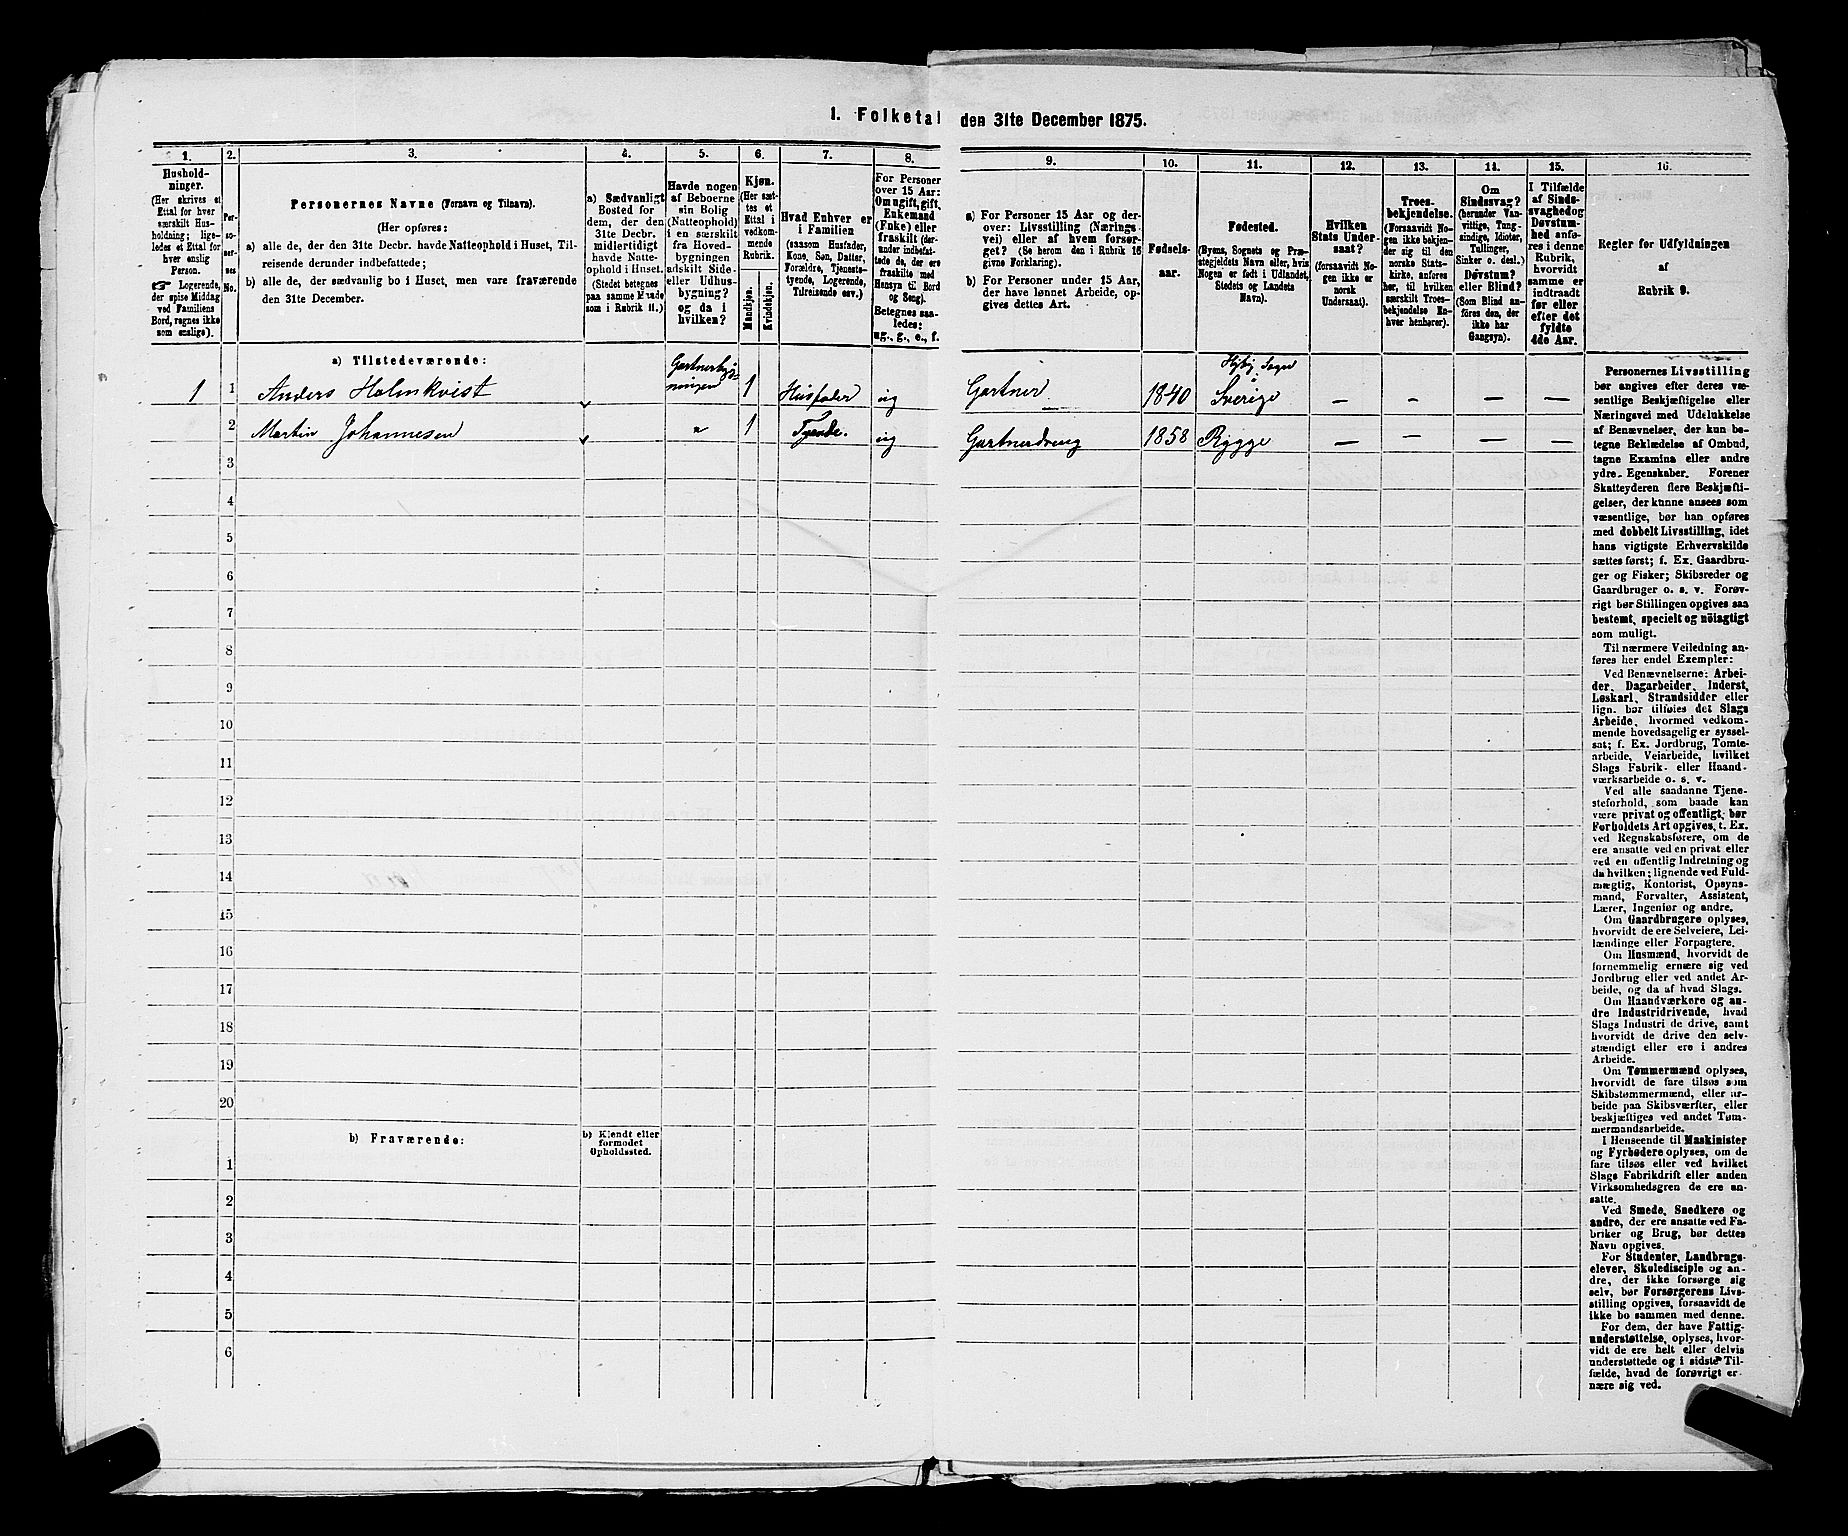 1. Folketal den 31te December 1875.
1. 2. 3. 4. 5. 6. 7. 8. 9. 10. 11. 12. 13. 14. 15. 16.
Hushold-
ninger.
(Her skrives et
Ettal for hver
særskilt Hus-
holdning; lige-
ledes et Ettal for
hver enslig
Person.
☞ Logerende,
der spise Middag
ved Familiens
Bord, regnes ikke
som enslige).
Per-
so-
ner-
nes
No.
Personernes Navne (Fornavn og Tilnavn).
(Her opføres:
a) alle de, der den 31te Decbr. havde Natteophold i Huset, Til-
reisende derunder indbefattede;
b) alle de, der sædvanlig bo i Huset, men vare fraværende
den 31te December.
a) Sædvanligt
Bosted for
dem, der den
31te Decbr.
midlertidigt
havde Natte-
ophold i Huset.
(Stedet betegnes
paa samme Maade
som i Rubrik 11.)
Havde nogen
af Beboerne
sin Bolig
(Natteophold)
i en særskilt
fra Hoved-
bygningen
adskilt Side-
eller Udhus-
bygning?
og da i
hvilken?
Kjøn.
(Her sæt-
tes et
Ettal i
vedkom-
mende
Rubrik.
Mandkjøn.
Kvindekjøn.
Hvad Enhver er
i Familien
(saasom Husfader,
Kone, Søn, Datter,
Forældre, Tjeneste-
tyende, Logerende,
Tilreisende osv.)
For Personer
over 15 Aar:
Om ugift, gift,
Enkemand
(Enke) eller
fraskilt (der-
under indbefat-
tede de, der ere
fraskilte med
Hensyn til Bord
og Seng).
Betegnes saa-
ledes:
ug., g., e., f.
a) For Personer 15 Aar og der-
over: Livsstilling (Nærings-
vei) eller af hvem forsør-
get? (Se herom den i Rubrik 16
givne Forklaring).
b) For Personer under 15 Aar,
der have lønnet Arbeide, op-
gives dettes Art.
Fødsels-
aar.
Fødested.
(Byens, Sognets og Præ-
stegjeldets Navn eller, hvis
Nogen er født i Udlandet,
Stedets og Landets
Navn).
Hvilken
Stats Under-
saat?
(forsaavidt No-
gen ikke er
norsk
Undersaat).
Troes-
bekjendelse.
(Forsaavidt No-
gen ikke bekjen-
der sig til den
norske Stats-
kirke, anføres
her, til hvilken
særskilt Troes-
bekjendelse En-
hver henhører).
Om
Sindssvag?
(herunder Van-
vittige, Tung-
sindige, Idioter,
Tullinger,
Sinker o. desl.)
Døvstum?
eller Blind?
(Som Blind an-
føres den, der
ikke har
Gangsyn).
I Tilfælde
af Sinds-
svaghed og
Døvstum-
hed anfø-
res i denne
Rubrik,
hvorvidt
samme er
indtraadt
før eller
efter det
fyldte
4de Aar.
Regler for Udfyldningen
af
Rubrik 9.
a) Tilstedeværende:
1 1 Anders Holmkvist Gartnerbyg-
ningen 1 Husfader ug Gartner 1840 Sogn
Sverige — — — —
2 Martin Johannesen „ 1 Tyende. ug Gartnerdreng 1858 Rygge — — — —
3
4
5
6
7
8
9
10
11
12
13
14
15
16
17
18
19
20
b) Fraværende:
b) Kjendt eller
formodet
Opholdssted.
1
2
3
4
5
6
Personernes Livsstilling
bør angives efter deres væ-
sentlige Beskjæftigelse eller
Næringsvei med Udelukkelse
af Benævnelser, der kun be-
tegne Beklædelse af Ombud,
tagne Examina eller andre
ydre Egenskaber. Forener
Skatteyderen flere Beskjæfti-
gelser, der kunne ansees som
væsentlige, bør han opføres
med dobbelt Livsstilling, idet
hans vigtigste Erhvervskilde
sættes først; f. Ex. Gaardbru-
ger og Fisker; Skibsreder og
Gaardbruger o. s. v. Forøv-
rigt bør Stillingen opgives saa
bestemt, specielt og nøiagtigt
som muligt.
Til nærmere Veiledning an-
føres her endel Exempler:
Ved Benævnelserne: Arbei-
der, Dagarbeider, Inderst,
Løskarl, Strandsidder eller
lign. bør tilføies det Slags
Arbeide, hvormed vedkom-
mende hovedsagelig er syssel-
sat; f. Ex. Jordbrug, Tomte-
arbeide, Veiarbeide, hvilket
Slags Fabrik- eller Haand-
værksarbeide o. s. v.
Ved alle saadanne Tjene-
steforhold, som baade kan
være privat og offentligt, bør
Forholdets Art opgives, t. Ex.
ved Regnskabsførere, om de
ere ansatte ved en privat eller
ved en offentlig Indretning og
da hvilken; lignende ved Fuld-
mægtig, Kontorist, Opsyns-
mand, Forvalter, Assistent,
Lærer, Ingeniør og andre.
Om Gaardbrugere oplyses,
hvorvidt de ere Selveiere, Lei-
lændinge eller Forpagtere.
Om Husmænd, hvorvidt de
fornemmelig ernære sig ved
Jordbrug eller ved andet Ar-
beide, og da af hvad Slags.
Om Haandværkere og an-
dre Industridrivende, hvad
Slags Industri de drive, samt
hvorvidt de drive den selv-
stændigt eller ere i andres
Arbeide.
Om Tømmermænd oplyses,
hvorvidt de fare tilsøs som
Skibstømmermænd, eller ar-
beide paa Skibsværfter, eller
beskjæftiges ved andet Tøm-
mermandsarbeide.
I Henseende til Maskinister
og Fyrbødere oplyses, om de
fare tilsøs eller ved hvilket
Slags Fabrikdrift eller anden
Virksomhedsgren de ere an-
satte.
Ved Smede, Snedkere og
andre, der ere ansatte ved Fa-
briker og Brug, bør dettes
Navn opgives.
For Studenter, Landbrugs-
elever, Skoledisciple og an-
dre, der ikke forsørge sig
selv, bør Forsørgerens Livs-
stilling opgives, forsaavidt de
ikke bo sammen med denne.
For dem, der have Fattig-
understøttelse, oplyses, hvor-
vidt de ere helt eller delvis
understøttede og i sidste Til-
fælde, hvad de forøvrigt er-
nære sig ved.